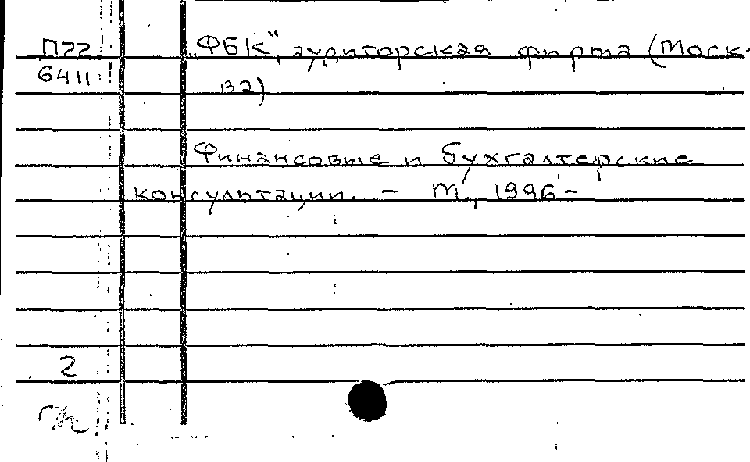 П22 ФБК", аудиторская фирма (Моск-
6411 ва)
Финансовые и бухгалтерские
консультации. - М., 1996-
2